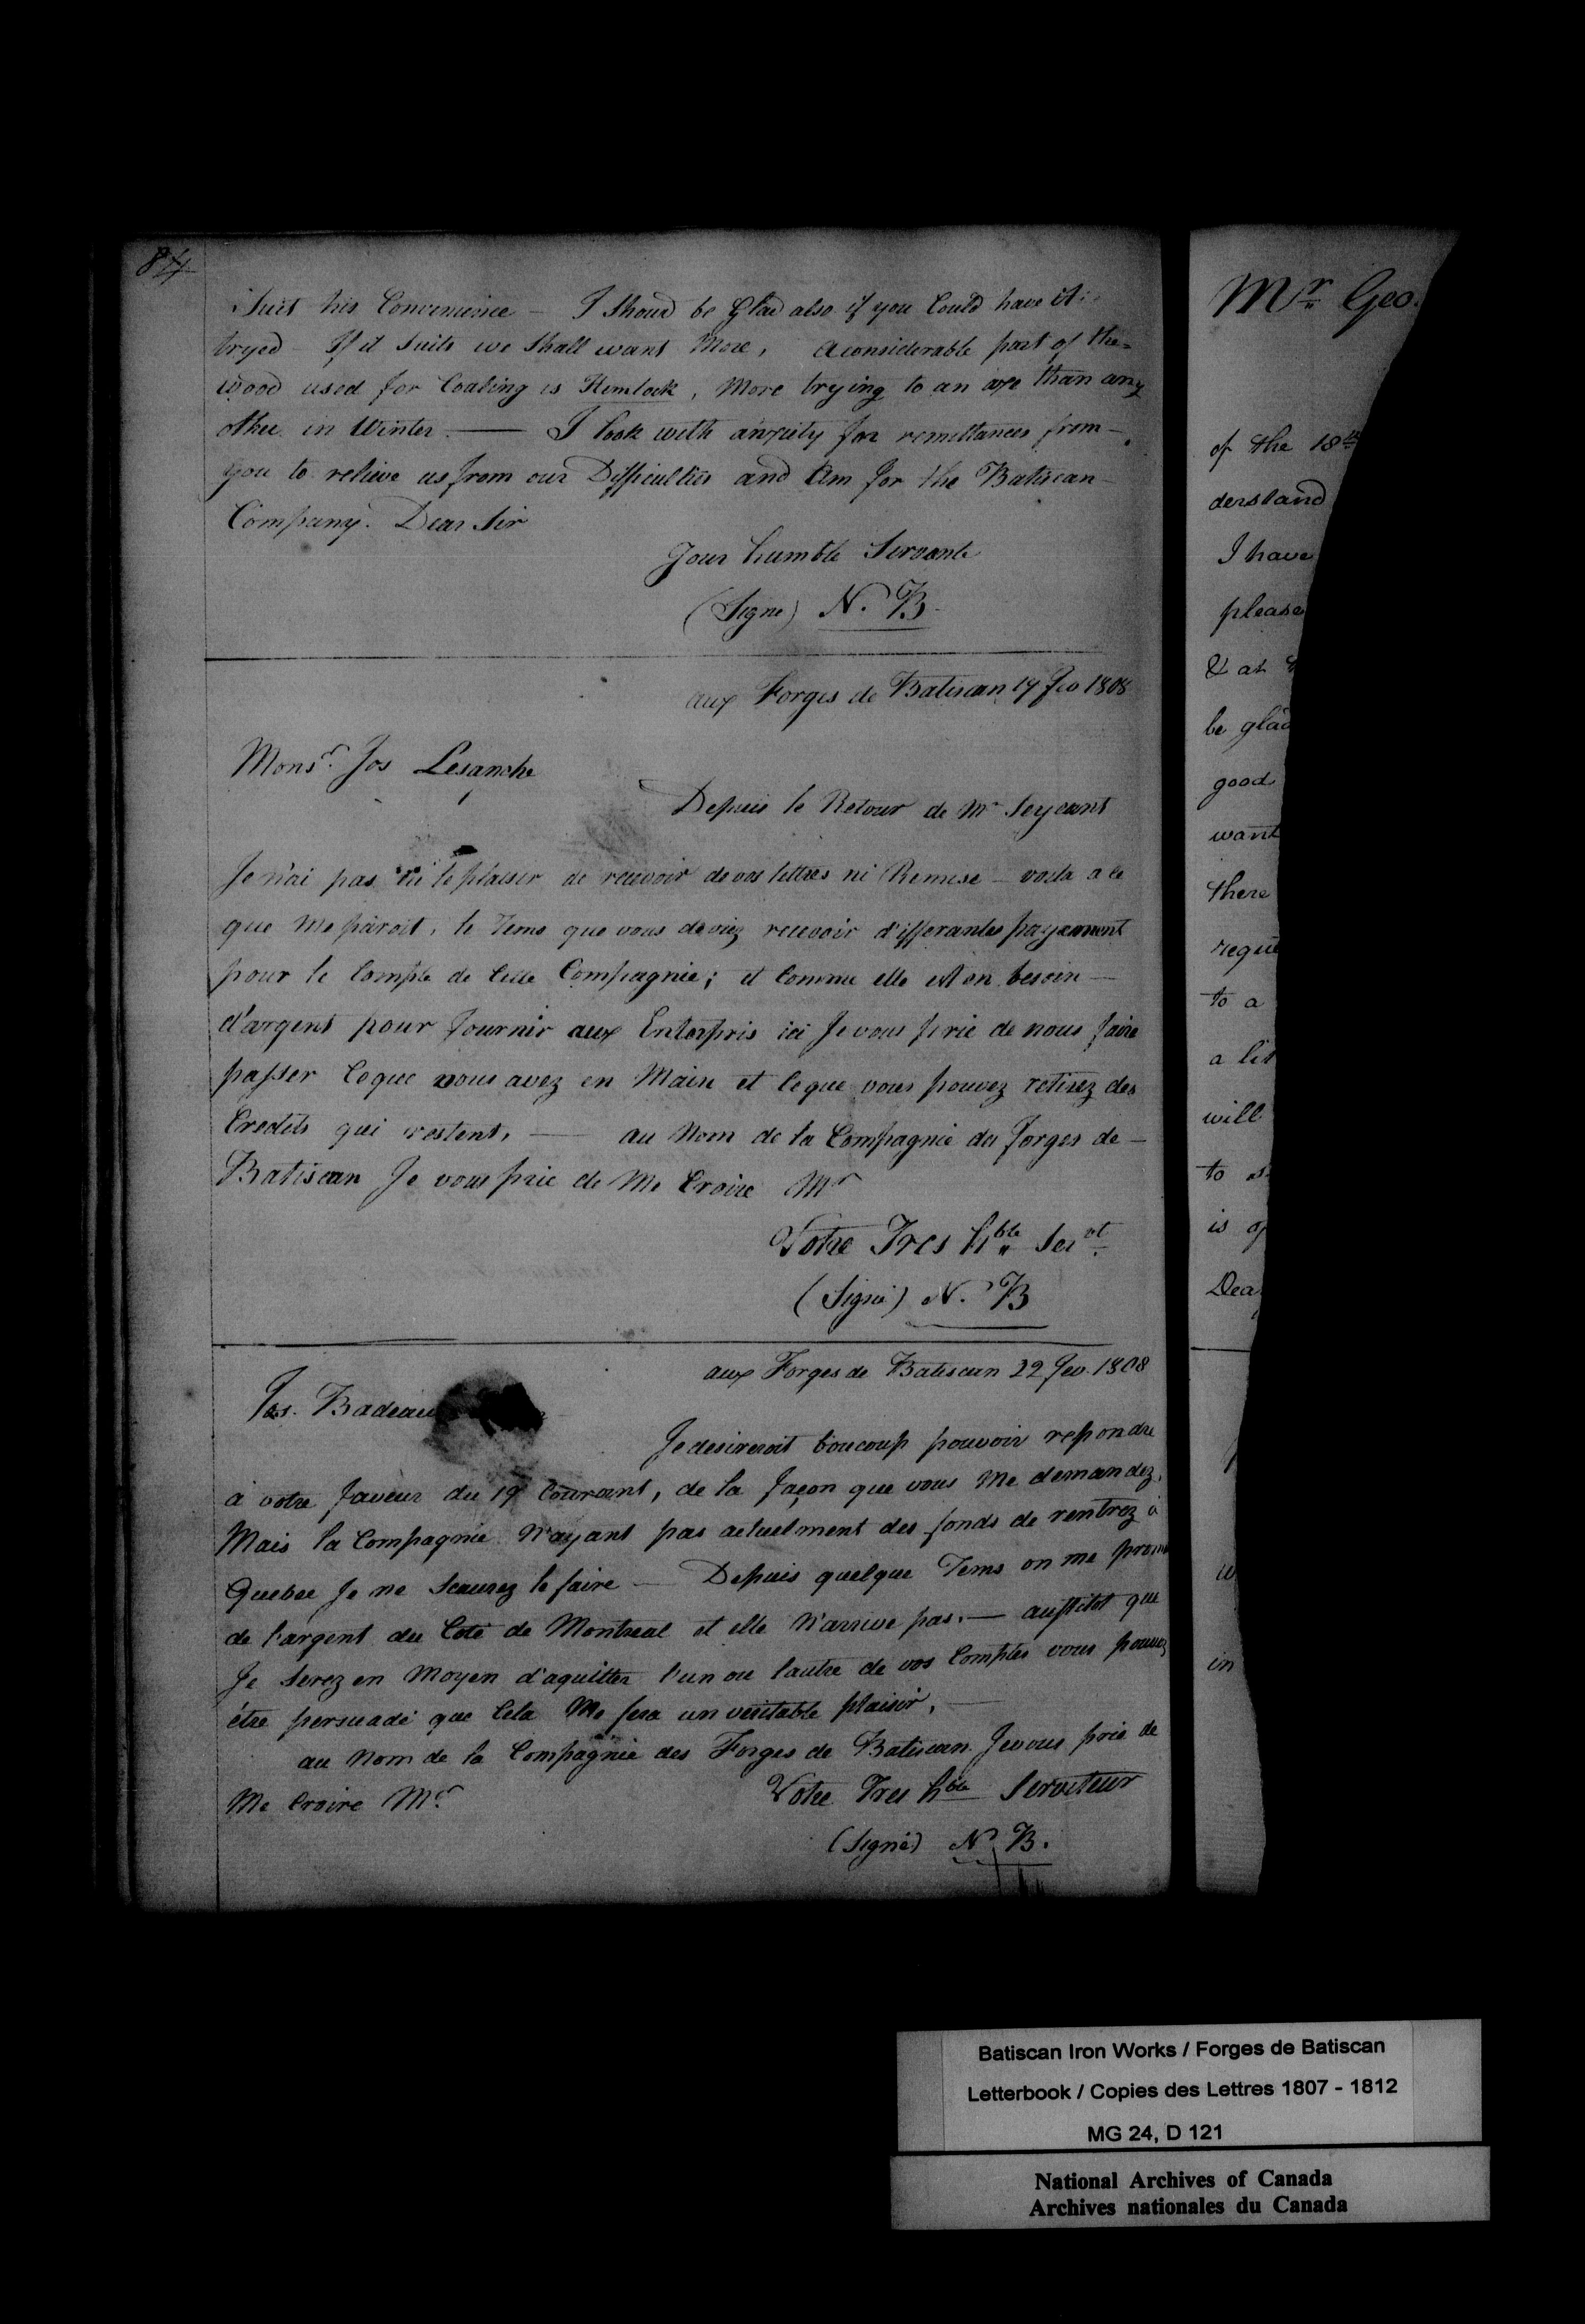 84
Suit his Convenience - I Shoud be Glad also if you Could have it
tryed - If it Suits we Shall want More, Aconsiderable part of the-
wood used for Coaling is Hemlock, More trying to an axe than any
other in Winter. — I look with anxiety for remittances from-
you to relieve us from our Difficulties and Am for the Batiscan-
Company. Dear Sir
Your humble Servante
(Signe) N. B
aux Forges de Batiscan 19 Fev 1808
Monsr. Jos Lesanche
Depuis le Retour de Mr
Je n'ai pas eu le plaisir de recevoir de vos lettres ni Remise - voila a ce
que Me paroit, le Tems que vous deviez recevoir d'ifferantes payement
pour le Compte de Cette Compagnie; et Comme elle est en besoin —
d'argent pour fournir aux Enterpris ici Je vous prie de nous faire
passer Ceque vous avez en Main et Ceque vous pouvez retirez des
Credits qui restent, — au Nom de la Compagnie des Forges de —
Batiscan Je vous prie de Me Croire Mr
Votre Tres hble Servt
(Signé) N. B
aux Forges de Batiscan 22 Fev. 1808
Jos. Badeau
Je desireroit boucoup pouvoir repondre
à votre faveur du 19 Courant, de la façon que vous Me demandez,
Mais la Compagnie N'ayant pas actuelment des fonds de rentrez à
Quebec Je ne Scaurez le faire — Depuis quelque Tems on me
de l'argent du Coté de Montreal et elle N'arrive pas. — aussitot que
Je Serez en Moyen d'aquitter l'un ou lautre de vos Comptes vous pouvez
être persuadé que Cela Me fera un veritable plaisir, —
au Nom de la Compagnie des Forges de Batiscan Jevous prie de
Me Croire Mr.
Votre Tres hble Serviteur
(Signé) N. B.
Mr Geo.
of the 18th
derstand
I have
please
& at
be glad
good
want
there
reque
to a
a lit
will
to s
is of
Dea
in
Batiscan Iron Works / Forges de Batiscan
Letterbook / Copies des Lettres 1807 - 1812
MG 24, D 121
National Archives of Canada
Archives nationales du Canada